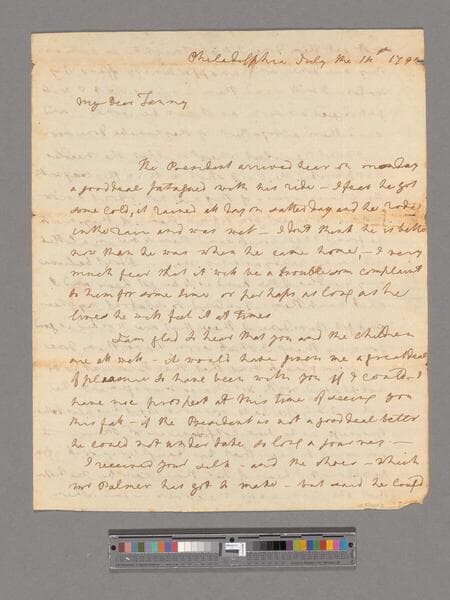 Philadelphia July the 14th 1794
My Dear Fanny
The President arrived hear on monday
a good deal fatagued with his ride - I fear he got
some cold, it rained all day on satterday and he rode
in the rain and was wet - I dont think he is better
now than he was when he came home, - I very
much fear that it will be a troublesom complaint
to him for some time or perhaps as long as he
lives he will feel it at times
I am glad to hear that you and the children
are all well - it would have given me a great deal
of pleasure to have been with you if I could - I
have noe prospect at this time of seeing you
this fall - if the President is not a good deal better
he could not under take so long a journey -
I received your silk - and the shoes - which
mr Palmer has got to make - but said he could